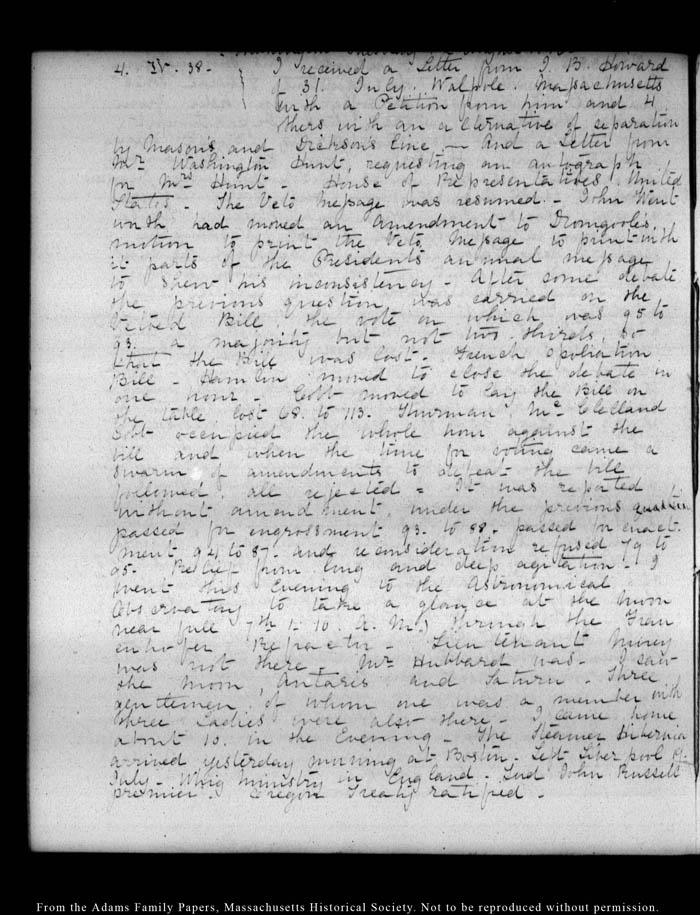 Washington Tuesday
4. IV. 38. I received a Letter from J. B. Howard
of 31. July. Walpole. Massachusetts
with a Petition from him and 4
others with an alternative of separation
by Mason's and Dickson's line — And a Letter from
Mr Washington Hunt, requesting an autograph
for Mrs Hunt — House of Representatives, United
States. The Veto message was resumed — John Went
worth had moved an amendment to Dromgoole's
motion to print the Veto Message to print with
it parts of the President's annual message
to shew his inconsistency — After some debate
the previous question was carried on the
Vetoed Bill, the vote on which was 95 to
93. a majority but not two thirds, so
that the Bill was lost — French Spoliation
Bill — Hamlin moved to close the debate in
one hour — Cobb moved to lay the Bill on
the table lost 68. to 113. Thurman, Mc Clelland
Cobb occupied the whole hour against the
bill and when the time for voting came a
swarm of amendments to defeat the bill
followed, all rejected — It was reported
without amendment, under the previous question
passed for engrossment 93. to 88. passed for enact-
ment 94 to 87. and reconsideration refused 79 to
95. Relief from long and deep agitation — I
went this Evening to the Astronomical
Observatory to take a glance at the moon
near full 7th 1. 10. A.M.) through the Frau
enhofer Refractor — Lieutenant Maury
was not there — Mr Hubbard was — I saw
the moon, Antares and Saturn — Three
gentlemen, of whom one was a member with
three Ladies were also there — I came home
about 10. in the Evening — The Steamer Hibernia
arrived yesterday morning at Boston — Left Liverpool 19.
July — Whig Ministry in England — Lord John Russell
premier — Oregon Treaty ratified —
From the Adams Family Papers, Massachusetts Historical Society. Not to be reproduced without permission.